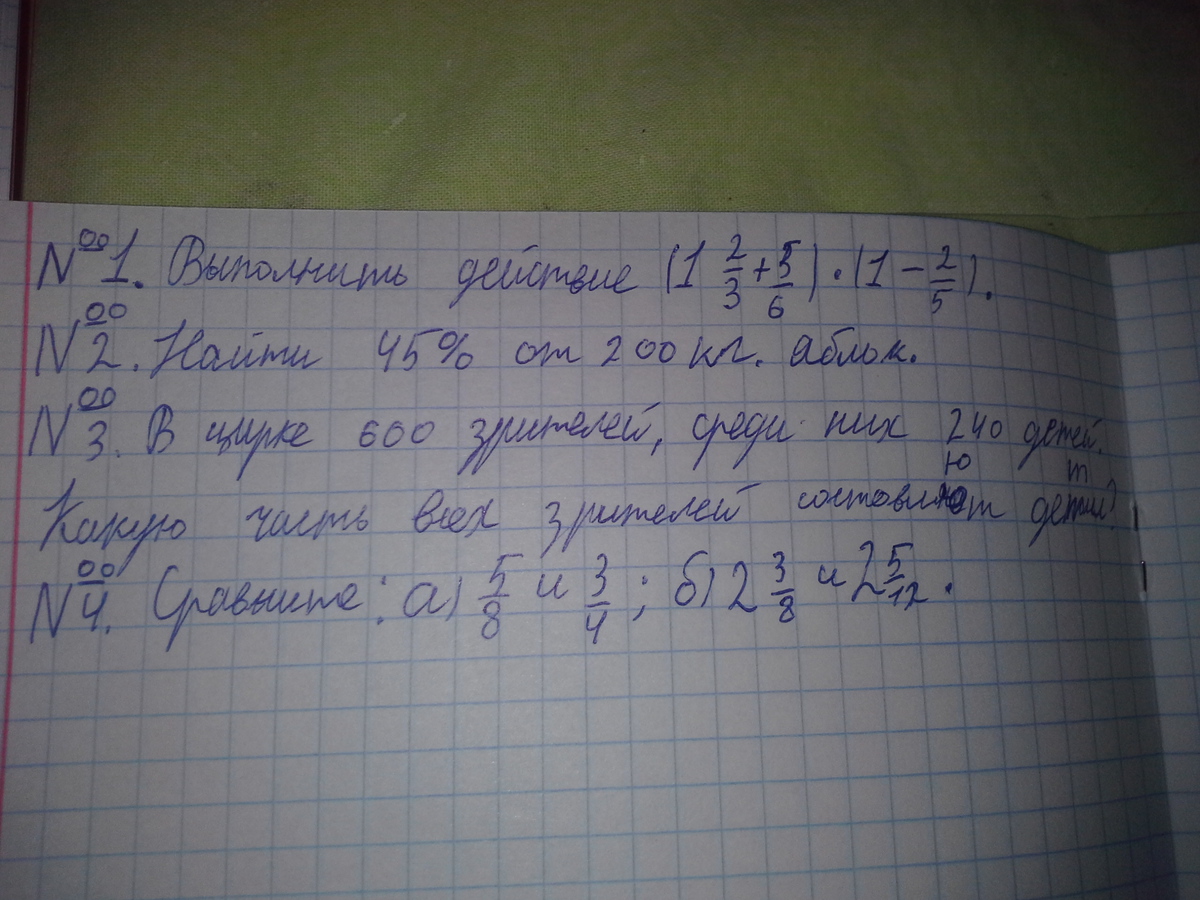 №1. Выполнить действие (1 2/3 + 5/6) · (1 − 2/5).
№2. Найти 45% от 200 кг. яблок.
№3. В цирке 600 зрителей, среди них 240 детей.
Какую часть всех зрителей составляют дети?
№4. Сравните: а) 5/8 и 3/4; б) 2 3/8 и 2 5/12.